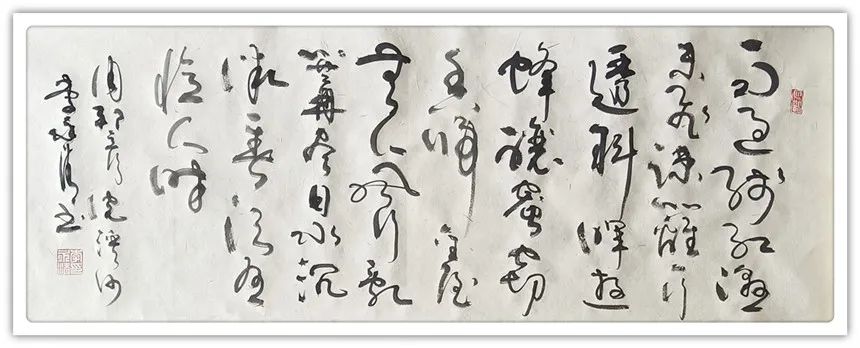 雨過殘紅濕
未飛疎籬一行
透斜暉遊
蜂釀蜜竊
香歸金屋
無人風竹亂
衣篝盡日水沉
微一春須有
憶人時
周邦彥浣溪沙
書